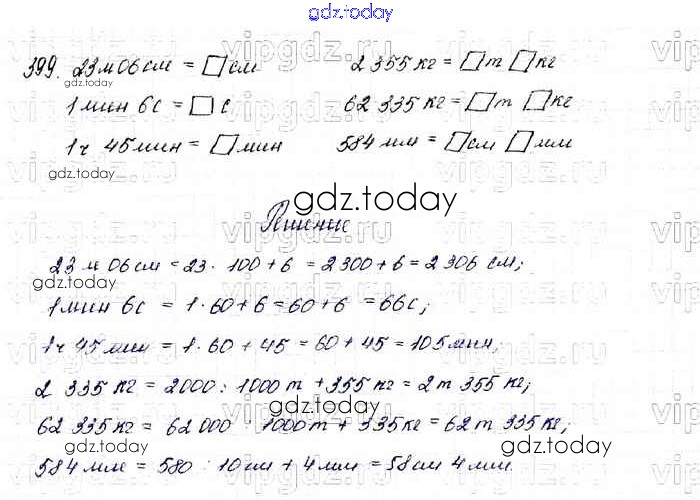 gdz.today
399. 23 м 06 см = □ см 2 355 кг = □ т □ кг
gdz.today
1 мин 6 с = □ с 62 335 кг = □ т □ кг
1 ч 45 мин = □ мин 584 мм = □ см □ мм
gdz.today
gdz.today
Решение
23 м 06 см = 23 · 100 + 6 = 2300 + 6 = 2 306 см;
gdz.today
1 мин 6 с = 1 · 60 + 6 = 60 + 6 = 66 с;
1 ч 45 мин = 1 · 60 + 45 = 60 + 45 = 105 мин,
2 335 кг = 2000 : 1000 т + 355 кг = 2 т 355 кг;
gdz.today
62 335 кг = 62 000 : 1000 т + 335 кг = 62 т 335 кг;
gdz.today gdz.today
584 мм = 580 : 10 см + 4 мм = 58 см 4 мм.
vipgdz.ru